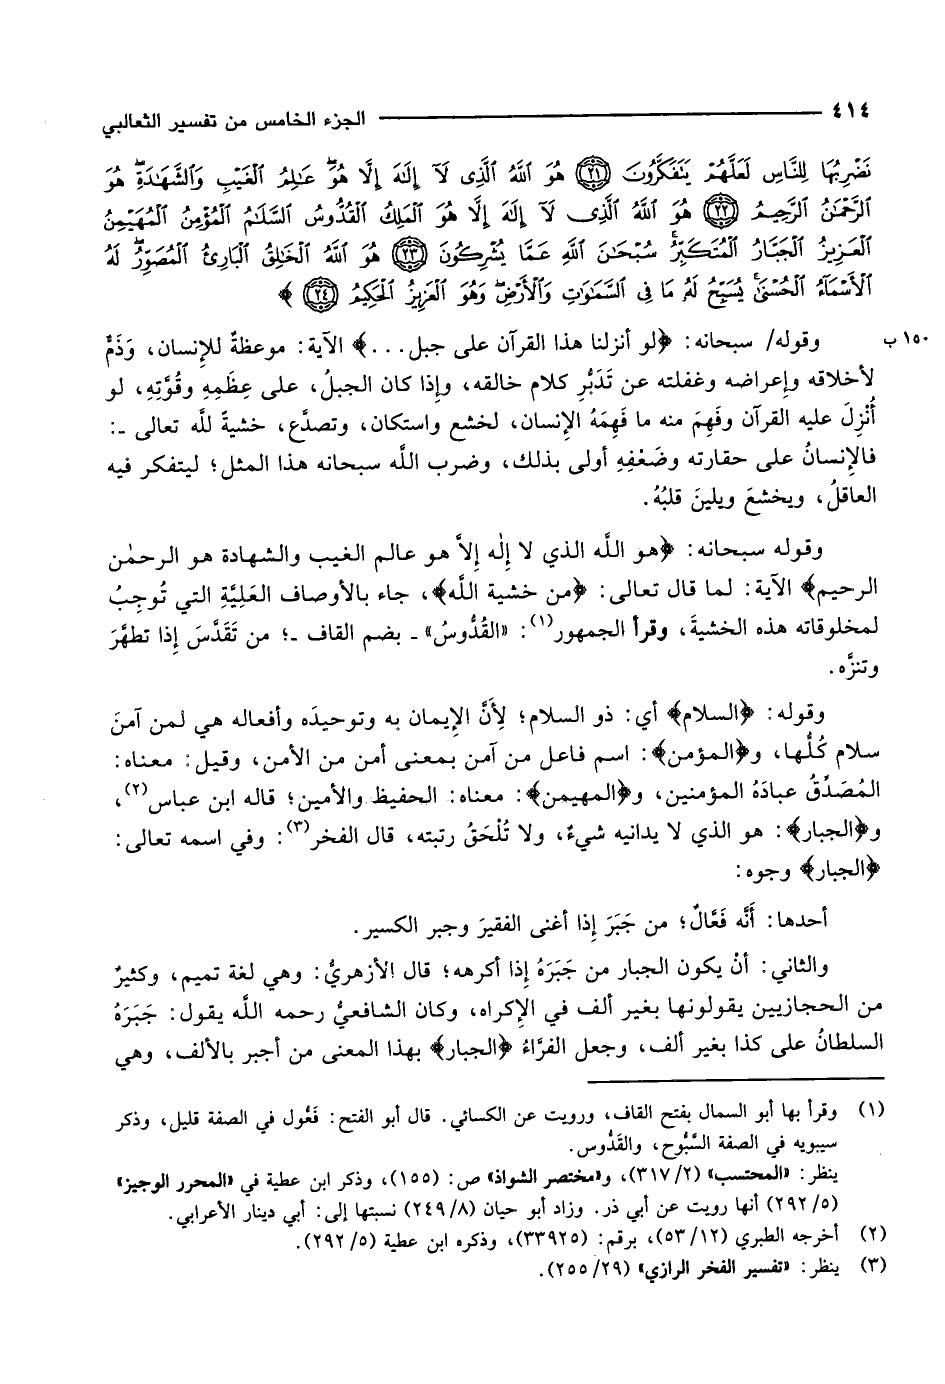 ٤١٤ الجزء الخامس من تفسير الثعالبي
نَضْرِبُهَا لِلنَّاسِ لَعَلَّهُمْ يَتَفَكَّرُونَ ٢١ هُوَ ٱللَّهُ ٱلَّذِى لَآ إِلَٰهَ إِلَّا هُوَ عَٰلِمُ ٱلْغَيْبِ وَٱلشَّهَٰدَةِ هُوَ
ٱلرَّحْمَٰنُ ٱلرَّحِيمُ ٢٢ هُوَ ٱللَّهُ ٱلَّذِى لَآ إِلَٰهَ إِلَّا هُوَ ٱلْمَلِكُ ٱلْقُدُّوسُ ٱلسَّلَٰمُ ٱلْمُؤْمِنُ ٱلْمُهَيْمِنُ
ٱلْعَزِيزُ ٱلْجَبَّارُ ٱلْمُتَكَبِّرُ سُبْحَٰنَ ٱللَّهِ عَمَّا يُشْرِكُونَ ٢٣ هُوَ ٱللَّهُ ٱلْخَٰلِقُ ٱلْبَارِئُ ٱلْمُصَوِّرُ لَهُ
ٱلْأَسْمَآءُ ٱلْحُسْنَىٰ يُسَبِّحُ لَهُۥ مَا فِى ٱلسَّمَٰوَٰتِ وَٱلْأَرْضِ وَهُوَ ٱلْعَزِيزُ ٱلْحَكِيمُ ٢٤ ﴾
١٥٠ ب وقوله/ سبحانه: ﴿لو أنزلنا هذا القرآن على جبل...﴾ الآية: موعظةٌ للإنسان، وَذَمٌّ
لأخلاقه وإعراضه وغفلته عن تَدَبُّرِ كلام خالقه، وإذا كان الجبلُ، على عِظَمِهِ وقُوَّتِهِ، لو
أُنْزِلَ عليه القرآن وفَهِمَ منه ما فَهِمَهُ الإنسان، لخشع واستكان، وتصدَّع، خشيةً لله تعالى ـ:
فالإنسانُ على حقارته وضَعْفِهِ أولى بذلك، وضرب الله سبحانه هذا المثل؛ ليتفكر فيه
العاقلُ، ويخشعَ ويلينَ قلبُهُ.
وقوله سبحانه: ﴿هو الله الذي لا إله إلاَّ هو عالم الغيب والشهادة هو الرحمٰن
الرحيم﴾ الآية: لما قال تعالى: ﴿من خشية اللَّه﴾، جاء بالأوصاف العَلِيَّةِ التي تُوجِبُ
لمخلوقاته هذه الخشيةَ، وقرأ الجمهور(١): «القُدُّوسُ» ـ بضم القاف ـ؛ من تَقَدَّسَ إذا تطهَّرَ
وتنزَّه.
وقوله: ﴿السلام﴾ أي: ذو السلام؛ لِأَنَّ الإيمان به وتوحيدَه وأفعاله هي لمن آمنَ
سلام كُلُّها، و﴿المؤمن﴾: اسم فاعل من آمن بمعنى أمن من الأمن، وقيل: معناه:
المُصَدِّقُ عبادَهُ المؤمنين، و﴿المهيمن﴾: معناه: الحفيظ والأمين؛ قاله ابن عباس(٢)،
و﴿الجبار﴾: هو الذي لا يدانيه شيءٌ، ولا تُلْحَقُ رتبته، قال الفخر(٣): وفي اسمه تعالى:
﴿الجبار﴾ وجوه:
أحدها: أَنَّه فَعَّالٌ؛ من جَبَرَ إذا أغنى الفقيرَ وجبر الكسير.
والثاني: أنْ يكون الجبار من جَبَرَهُ إذا أكرهه؛ قال الأزهريُّ: وهي لغة تميم، وكثيرٌ
من الحجازيين يقولونها بغير ألف في الإكراه، وكان الشافعيُّ رحمه الله يقول: جَبَرَهُ
السلطانُ على كذا بغير ألف، وجعل الفرَّاءُ ﴿الجبار﴾ بهذا المعنى من أجبر بالألف، وهي
(١) وقرأ بها أبو السمال بفتح القاف، ورويت عن الكسائي. قال أبو الفتح: فَعُول في الصفة قليل، وذكر
سيبويه في الصفة السَّبُّوح، والقَدُّوس.
ينظر: «المحتسب» (٢/ ٣١٧)، و«مختصر الشواذ» ص: (١٥٥)، وذكر ابن عطية في «المحرر الوجيز»
(٥/ ٢٩٢) أنها رويت عن أبي ذر. وزاد أبو حيان (٨/ ٢٤٩) نسبتها إلى: أبي دينار الأعرابي.
(٢) أخرجه الطبري (١٢/ ٥٣)، برقم: (٣٣٩٢٥)، وذكره ابن عطية (٥/ ٢٩٢).
(٣) ينظر: «تفسير الفخر الرازي» (٢٩/ ٢٥٥).